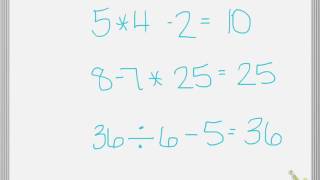 5*4 -2=10
8-7*25=25
36÷6-5=36